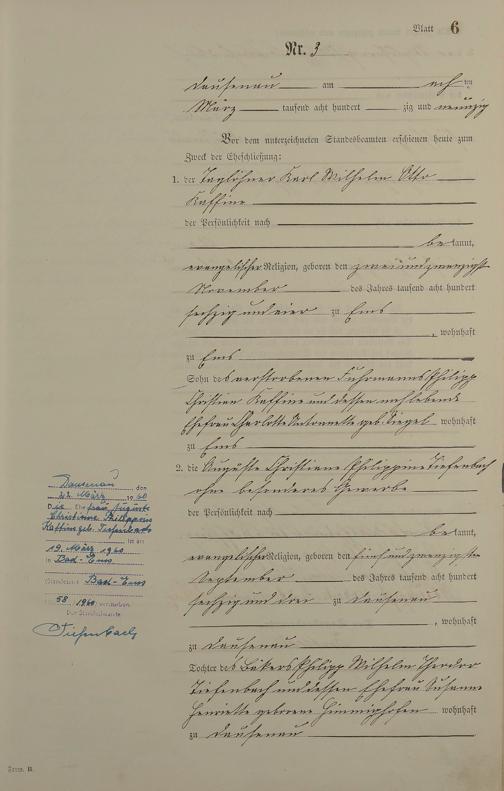 Blatt 6
Nr. 3
Dausenau am acht ten
März tausend acht hundert zig und neunzig
Vor dem unterzeichneten Standesbeamten erschienen heute zum
Zweck der Eheschließung:
1. der Taglöhner Karl Wilhelm Otto
Kaffine
der Persönlichkeit nach
be kannt,
evangelischer Religion, geboren den zweiundzwanzigsten
November des Jahres tausend acht hundert
sechzig und vier zu Ems
, wohnhaft
zu Ems
Sohn des verstorbenen Fuhrmanns Philipp
Christian Kaffine und dessen nachlebende
Ehefrau Charlotte Antonnette geb. Siegel wohnhaft
zu Ems
2. die Auguste Christiane Philippine Tiefenbach
ohne besonderes Gewerbe
der Persönlichkeit nach
be kannt,
evangelischer Religion, geboren den fünfundzwanzigsten
September des Jahres tausend acht hundert
sechzig und drei zu Dausenau
, wohnhaft
zu Dausenau
Tochter des Bäkers Philipp Wilhelm Theodor
Tiefenbach und dessen Ehefrau Susanne
Henriette geborene Himmighofen wohnhaft
zu Dausenau
Dausenau, den
22. März 1940
Die Ehefrau Auguste
Christiane Philippine
Kaffine geb. Tiefenbach
ist am
19. März 1940
in Bad-Ems
Standesamt Bad-Ems
58 1940
Der Standesbeamte
Tiefenbach
Form. B.